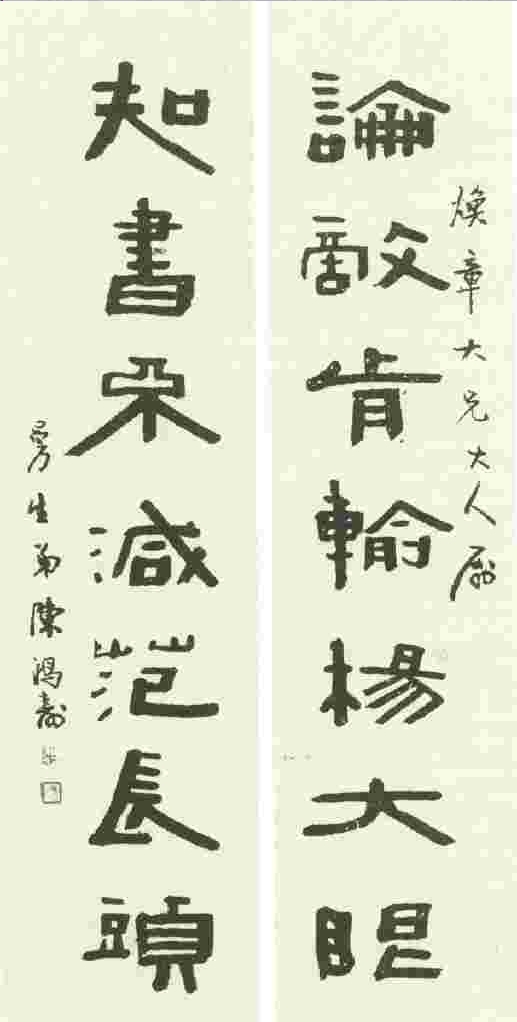 煥章大兄大人屬
論敵肯輸楊大眼
知書未減范長頭
曼生弟陳鴻壽